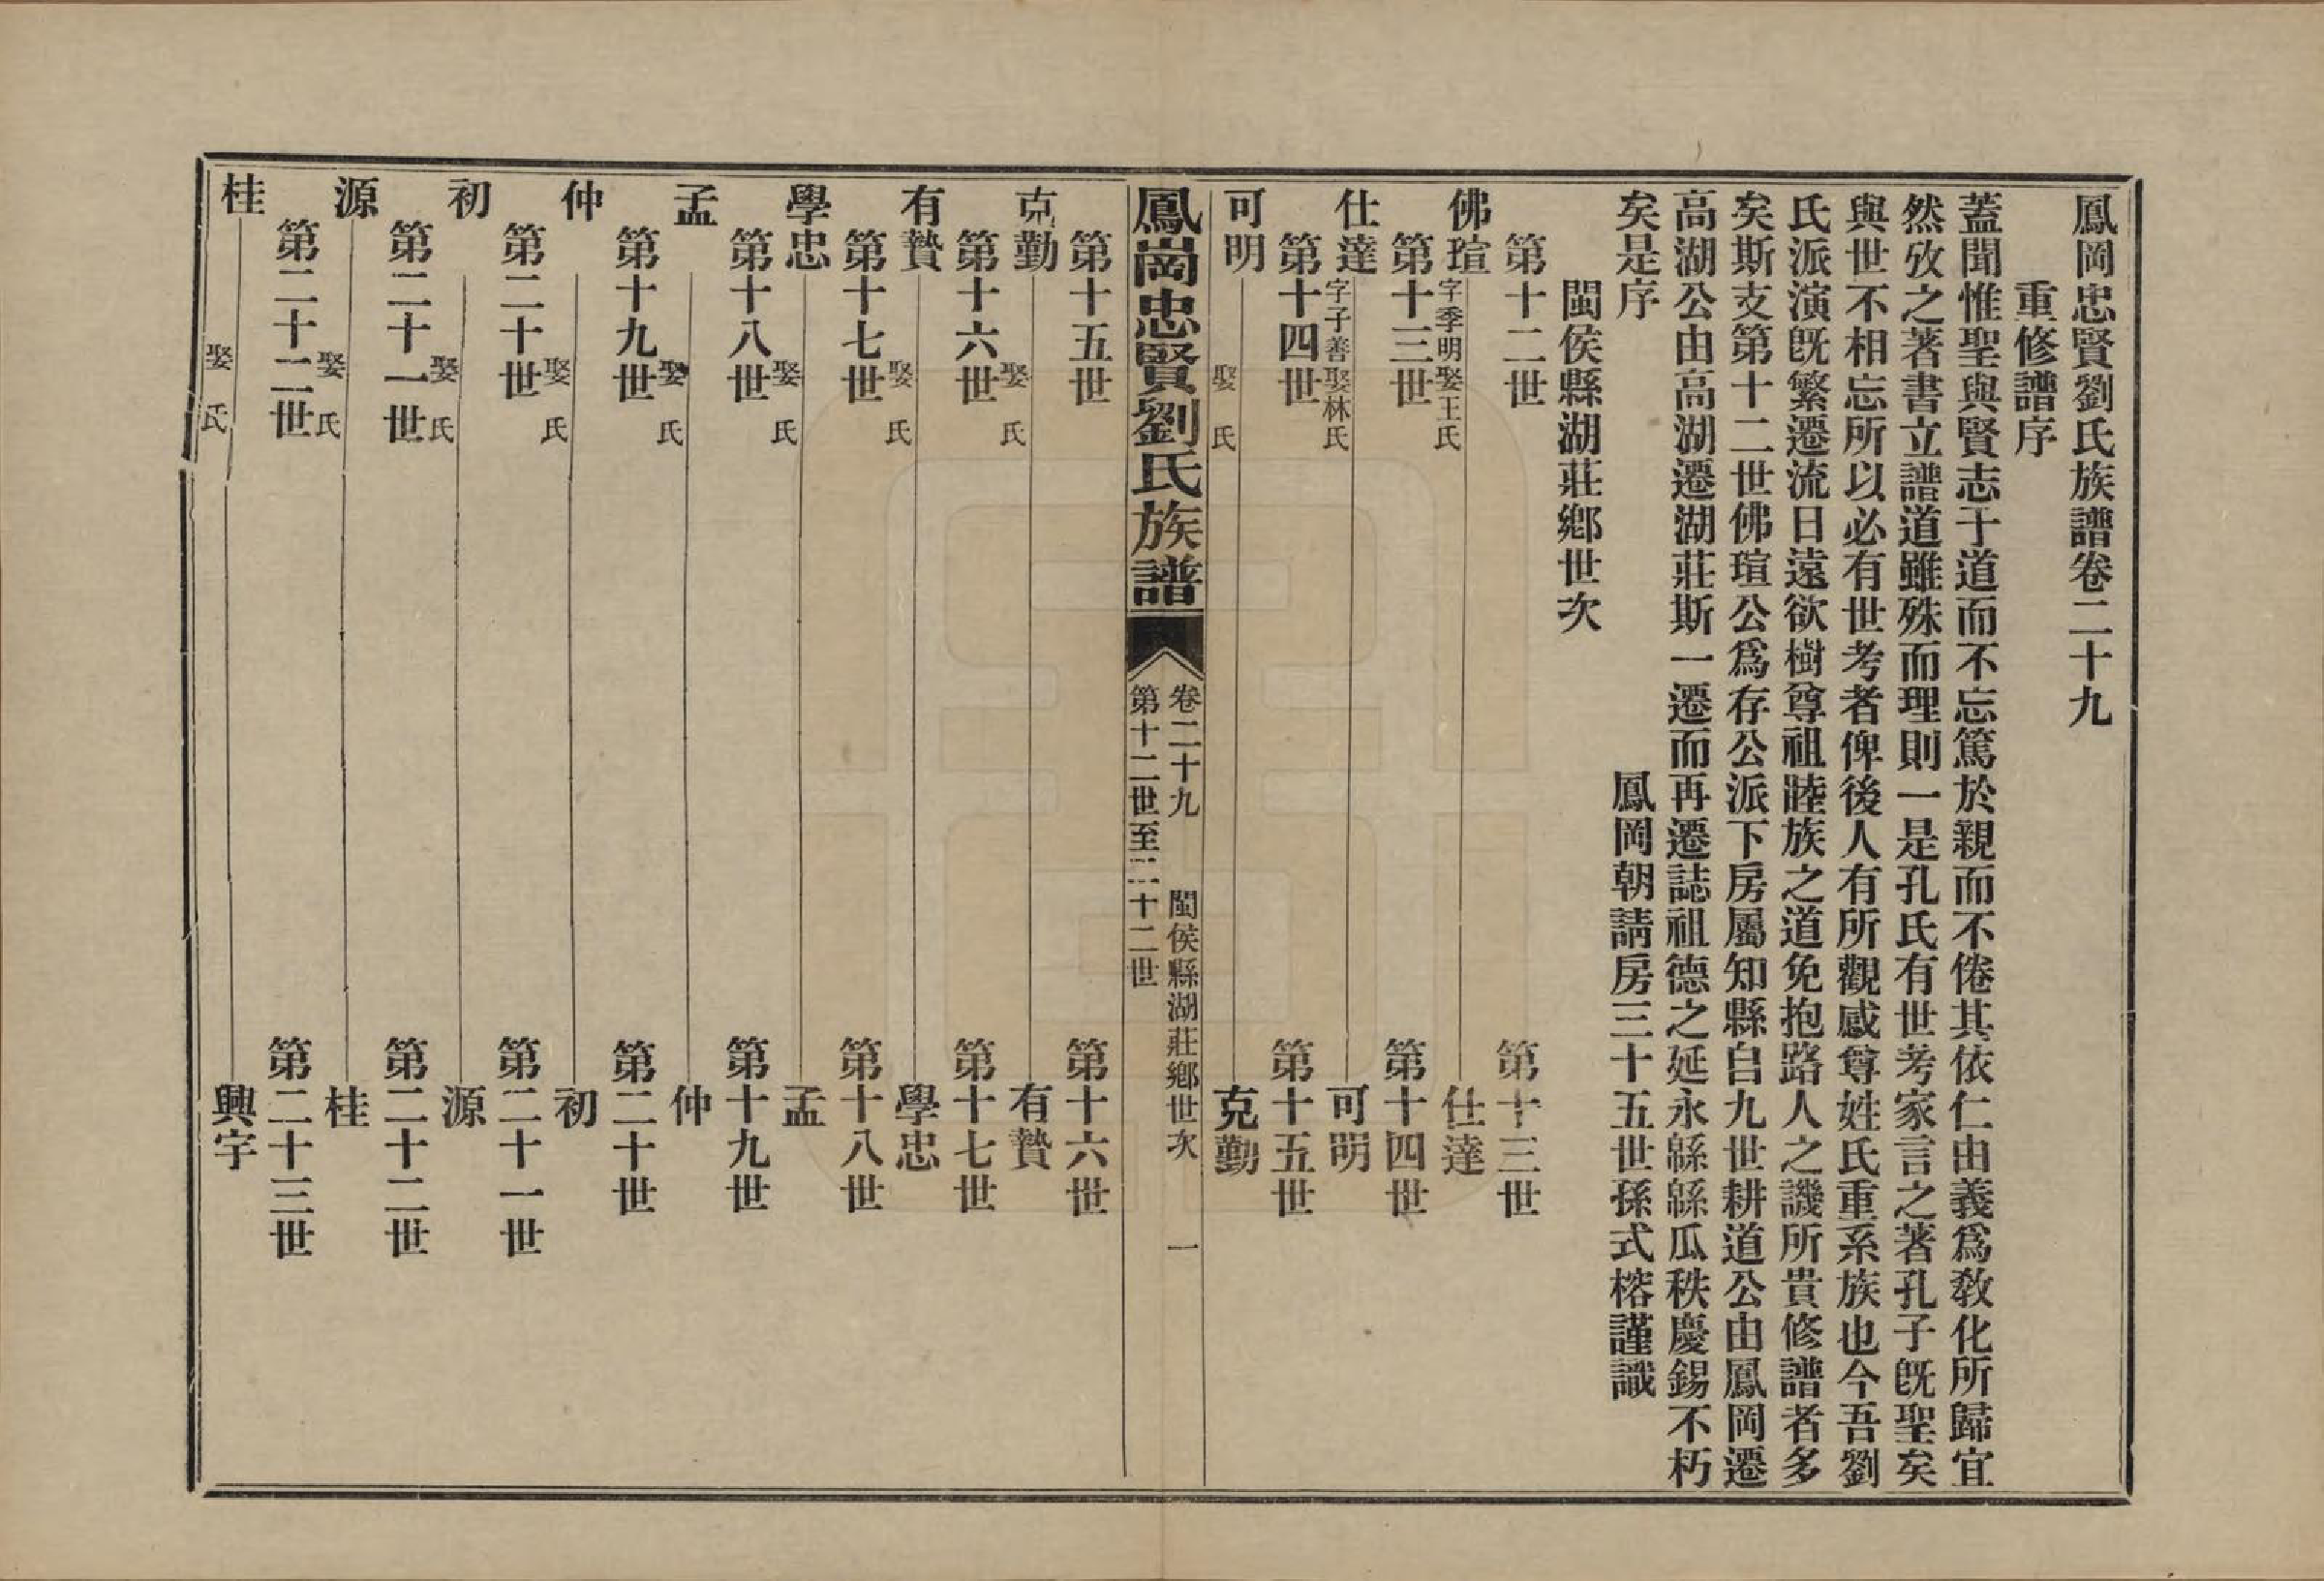 鳳岡忠賢劉氏族譜卷二十九
重修譜序
蓋聞惟聖與賢志于道而不忘篤於親而不倦其依仁由義爲教化所歸宜
然攷之著書立譜道雖殊而理則一是孔氏有世考家言之著孔子旣聖矣
與世不相忘所以必有世考者俾後人有所觀感尊姓氏重系族也今吾劉
氏派演旣繁遷流日遠欲樹尊祖睦族之道免抱路人之譏所貴修譜者多
矣斯支第十二世佛瑄公爲存公派下房屬知縣自九世耕道公由鳳岡遷
高湖公由高湖遷湖莊斯一遷而再遷誌祖德之延永緜緜瓜秩慶錫不朽
矣是序
鳳岡朝請房三十五世孫式榕謹識
閩侯縣湖莊鄕世次
第十二世 第十三世
佛瑄 字季明娶王氏 仕達
第十三世 第十四世
仕達 字子善娶林氏 可明
第十四世 第十五世
可明 娶 氏 克勤
鳳崗忠賢劉氏族譜
卷二十九 閩侯縣湖莊鄕世次 一
第十二世至二十二世
第十五世 第十六世
克勤 娶 氏 有贊
第十六世 第十七世
有贊 娶 氏 學忠
第十七世 第十八世
學忠 娶 氏 孟
第十八世 第十九世
孟 娶 氏 仲
第十九世 第二十世
仲 娶 氏 初
第二十世 第二十一世
初 娶 氏 源
第二十一世 第二十二世
源 娶 氏 桂
第二十二世 第二十三世
桂 娶 氏 興宇